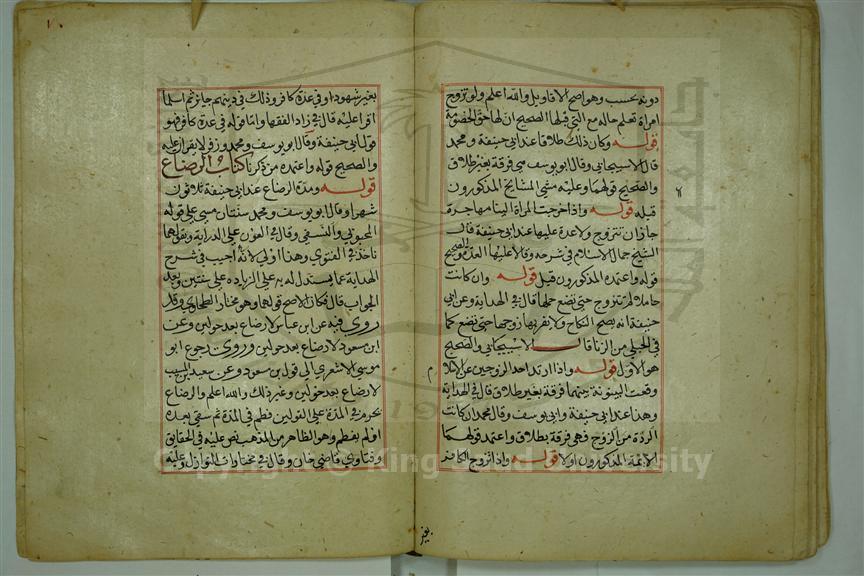 دونه بحسب وهو اصح الاقاويل والله اعلم ولو تزوج
امراة تعلم حاله مع التي قبلها الصحيح ان لها حق الخصومة
قوله وكان ذلك طلاقا عند ابي حنيفة ومحمد
قال الاسبيجابي وقال ابو يوسف هي فرقة بغير طلاق
والصحيح قولهما وعليه مشى المشايخ المذكورون
قبله قوله واذا خرجت المراة الينا مهاجرة
جاز ان تتزوج ولا عدة عليها عند ابي حنيفة قال
الشيخ جمال الاسلام في شرحه وقالا عليها العدة والصحيح
قوله واعتمده المذكورون قبل قوله وان كانت
حاملا لم تتزوج حتى تضع حملها قال في الهداية وعن ابي
حنيفة انه يصح النكاح ولا يقربها زوجها حتى تضع كما
في الحبلى من الزنا قال الاسبيجابي والصحيح
هو الاول قوله واذا ارتد احد الزوجين عن الاسلام
وقعت البينونة بينهما فرقة بغير طلاق قال في الهداية
وهذا عند ابي حنيفة وابي يوسف وقال محمد ان كانت
الردة من الزوج فهي فرقة بطلاق واعتمد قولهما
الائمة المذكورون اولا قوله واذا تزوج الكافر
بغير
بغير شهود او في عدة كافر وذلك في دينهم جايز ثم اسلما
اقرا عليه قال في زاد الفقها واما قوله في عدة كافر فهو
قول ابي حنيفة وقال ابو يوسف ومحمد وزفر لا يقران عليه
والصحيح قوله واعتمده من ذكرنا كتاب الرضاع
قوله ومدة الرضاع عند ابي حنيفة ثلاثون
شهرا وقال ابو يوسف ومحمد سنتان مشى على قوله
المحبوبي والنسفي وقال في العون على الدراية وبقولهما
ناخذ في الفتوى وهذا اولى لانه اجيب في شرح
الهداية عما يستدل له به على الزيادة على سنتين وبعد
الجواب قال فكان الاصح قولهما وهو مختار الطحاوي وقد
روى فيه عن ابن عباس لا رضاع بعد حولين وعن
ابن مسعود لا رضاع بعد حولين وروى رجوع ابو
موسى الاشعري الى قول بن مسعود وعن سعيد بن المسيب
لا رضاع بعد حولين وغير ذلك والله اعلم والرضاع
يحرم في المدة على القولين فطم في المدة ثم سقي بعده
او لم يفطم وهو الظاهر من المذهب نص عليه في الحقايق
وفتاوي قاضي خان وقال في مختارات النوازل وعليه
Copyright © King Saud University